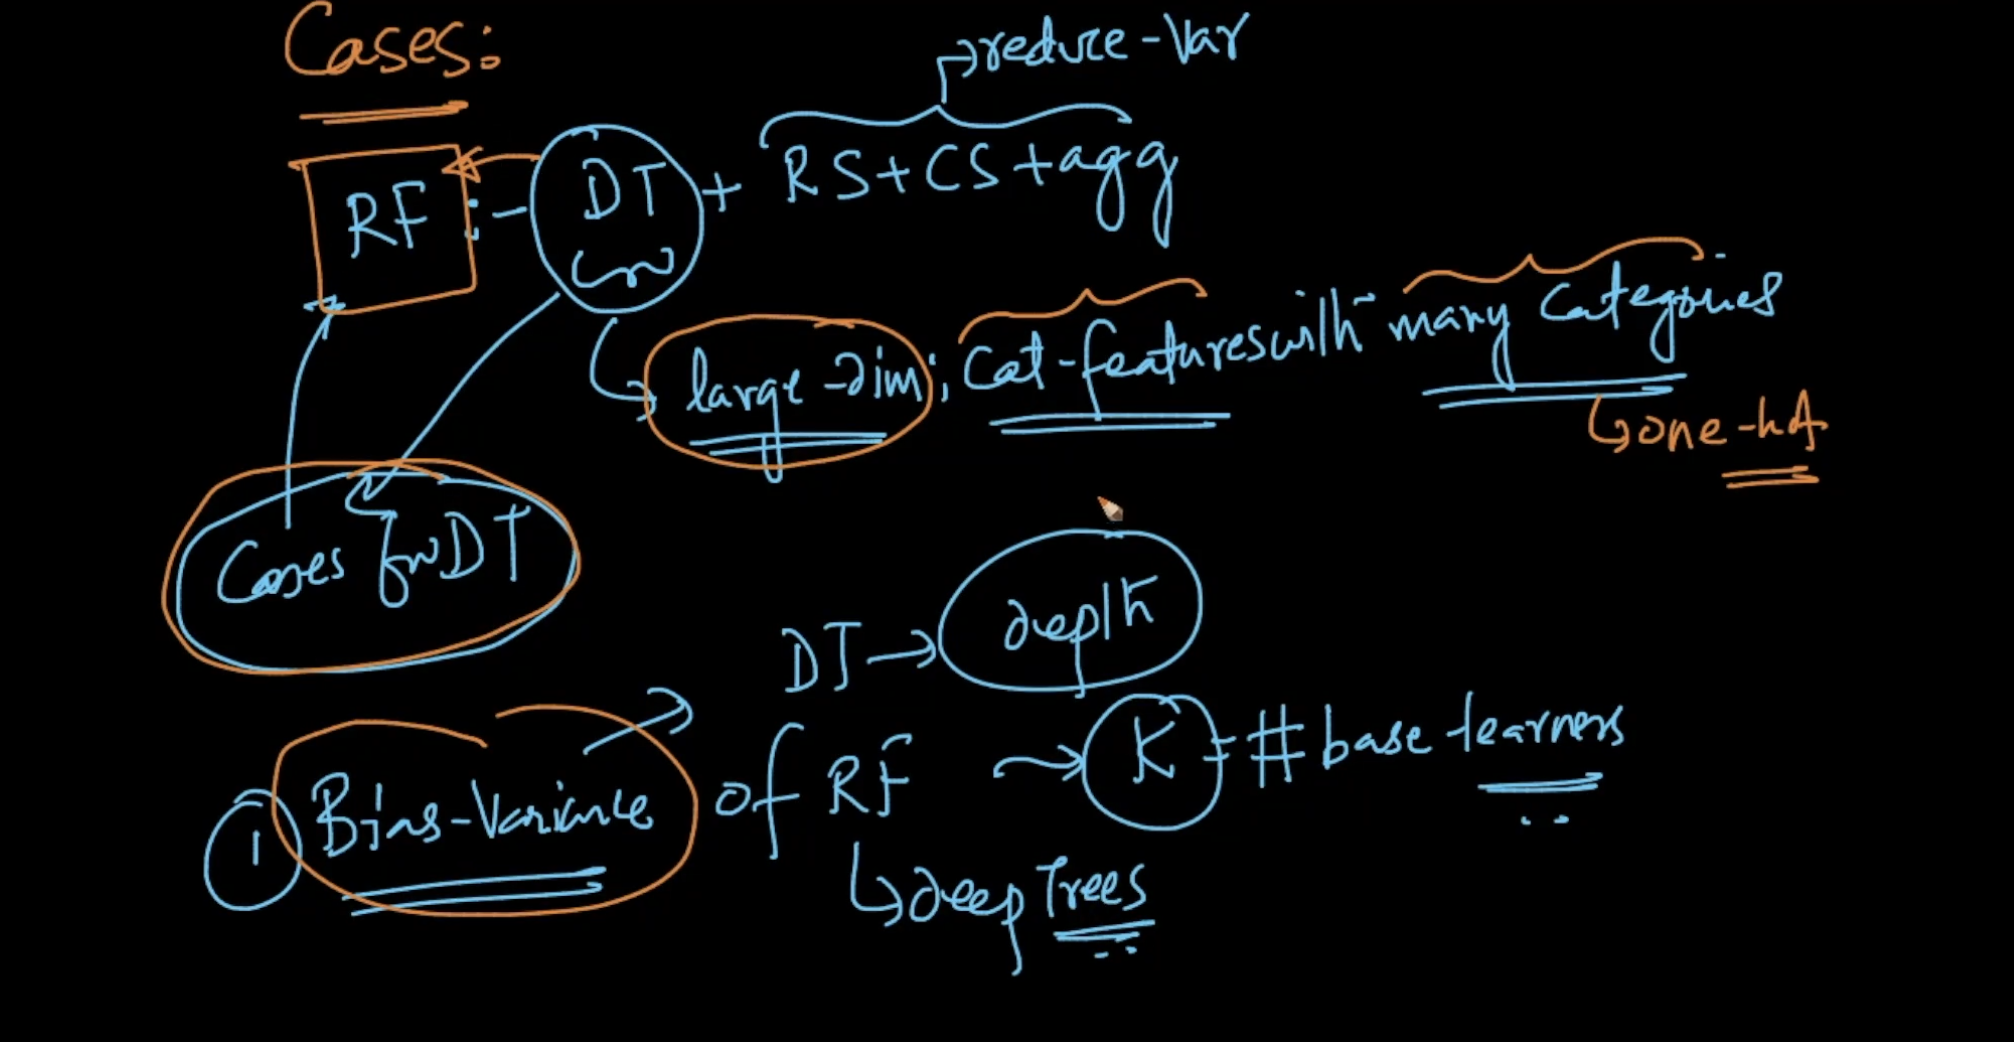 Cases:
reduce-Var
RF :- DT + RS+CS+agg
large-dim; Cat-features with many Categories
one-hot
Cases for DT
DT → depth
① Bias-Variance of RF → K = # base-learners
deep Trees